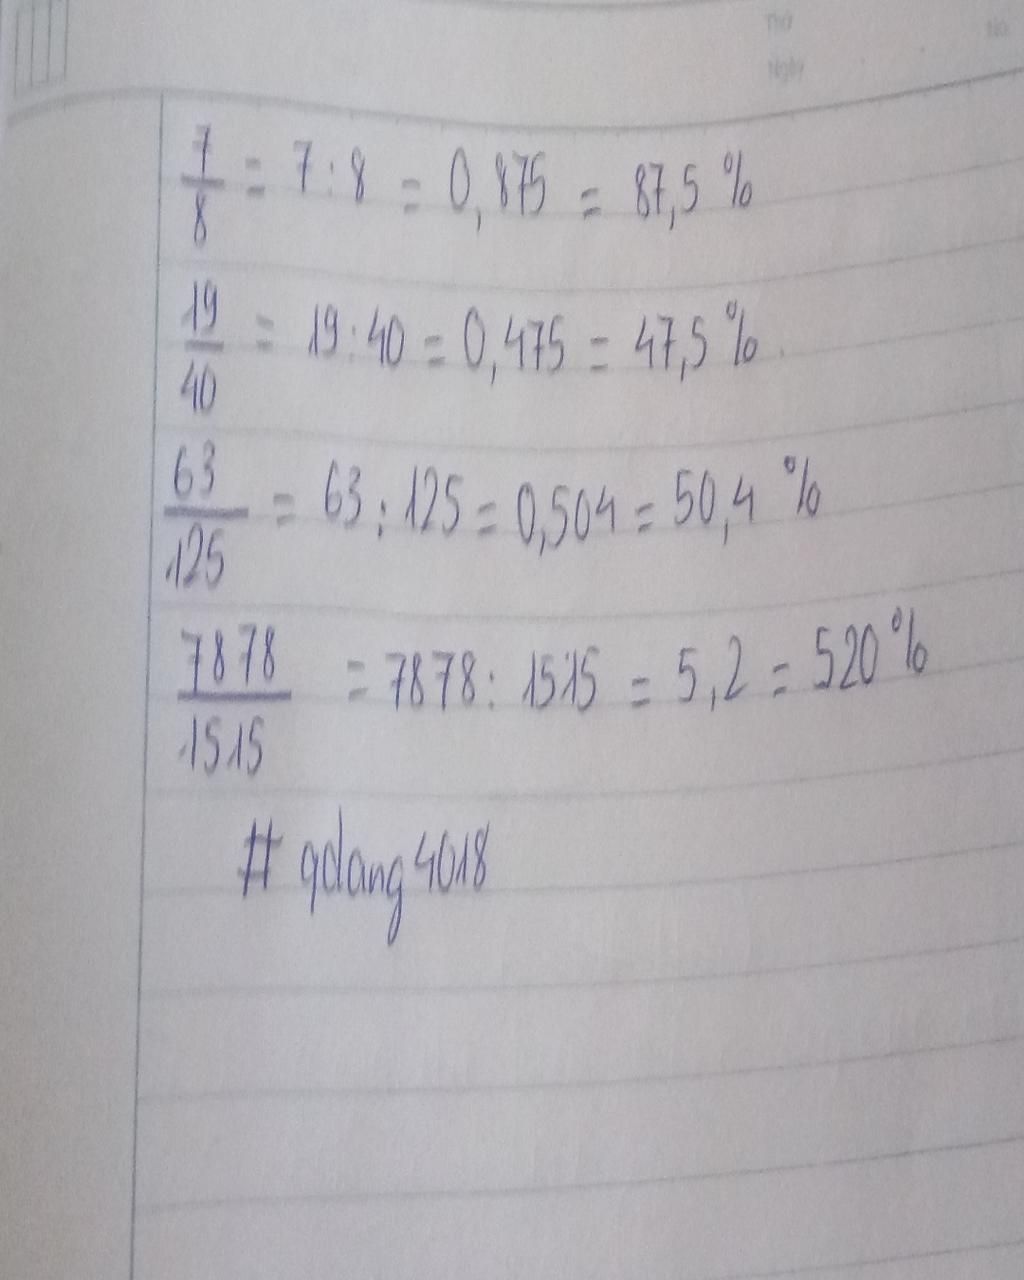 Thứ
No.
Ngày
7/8 = 7 : 8 = 0,875 = 87,5 %
19/40 = 19 : 40 = 0,475 = 47,5 %
63/125 = 63 : 125 = 0,504 = 50,4 %
7878/1515 = 7878 : 1515 = 5,2 = 520 %
# qdang4018